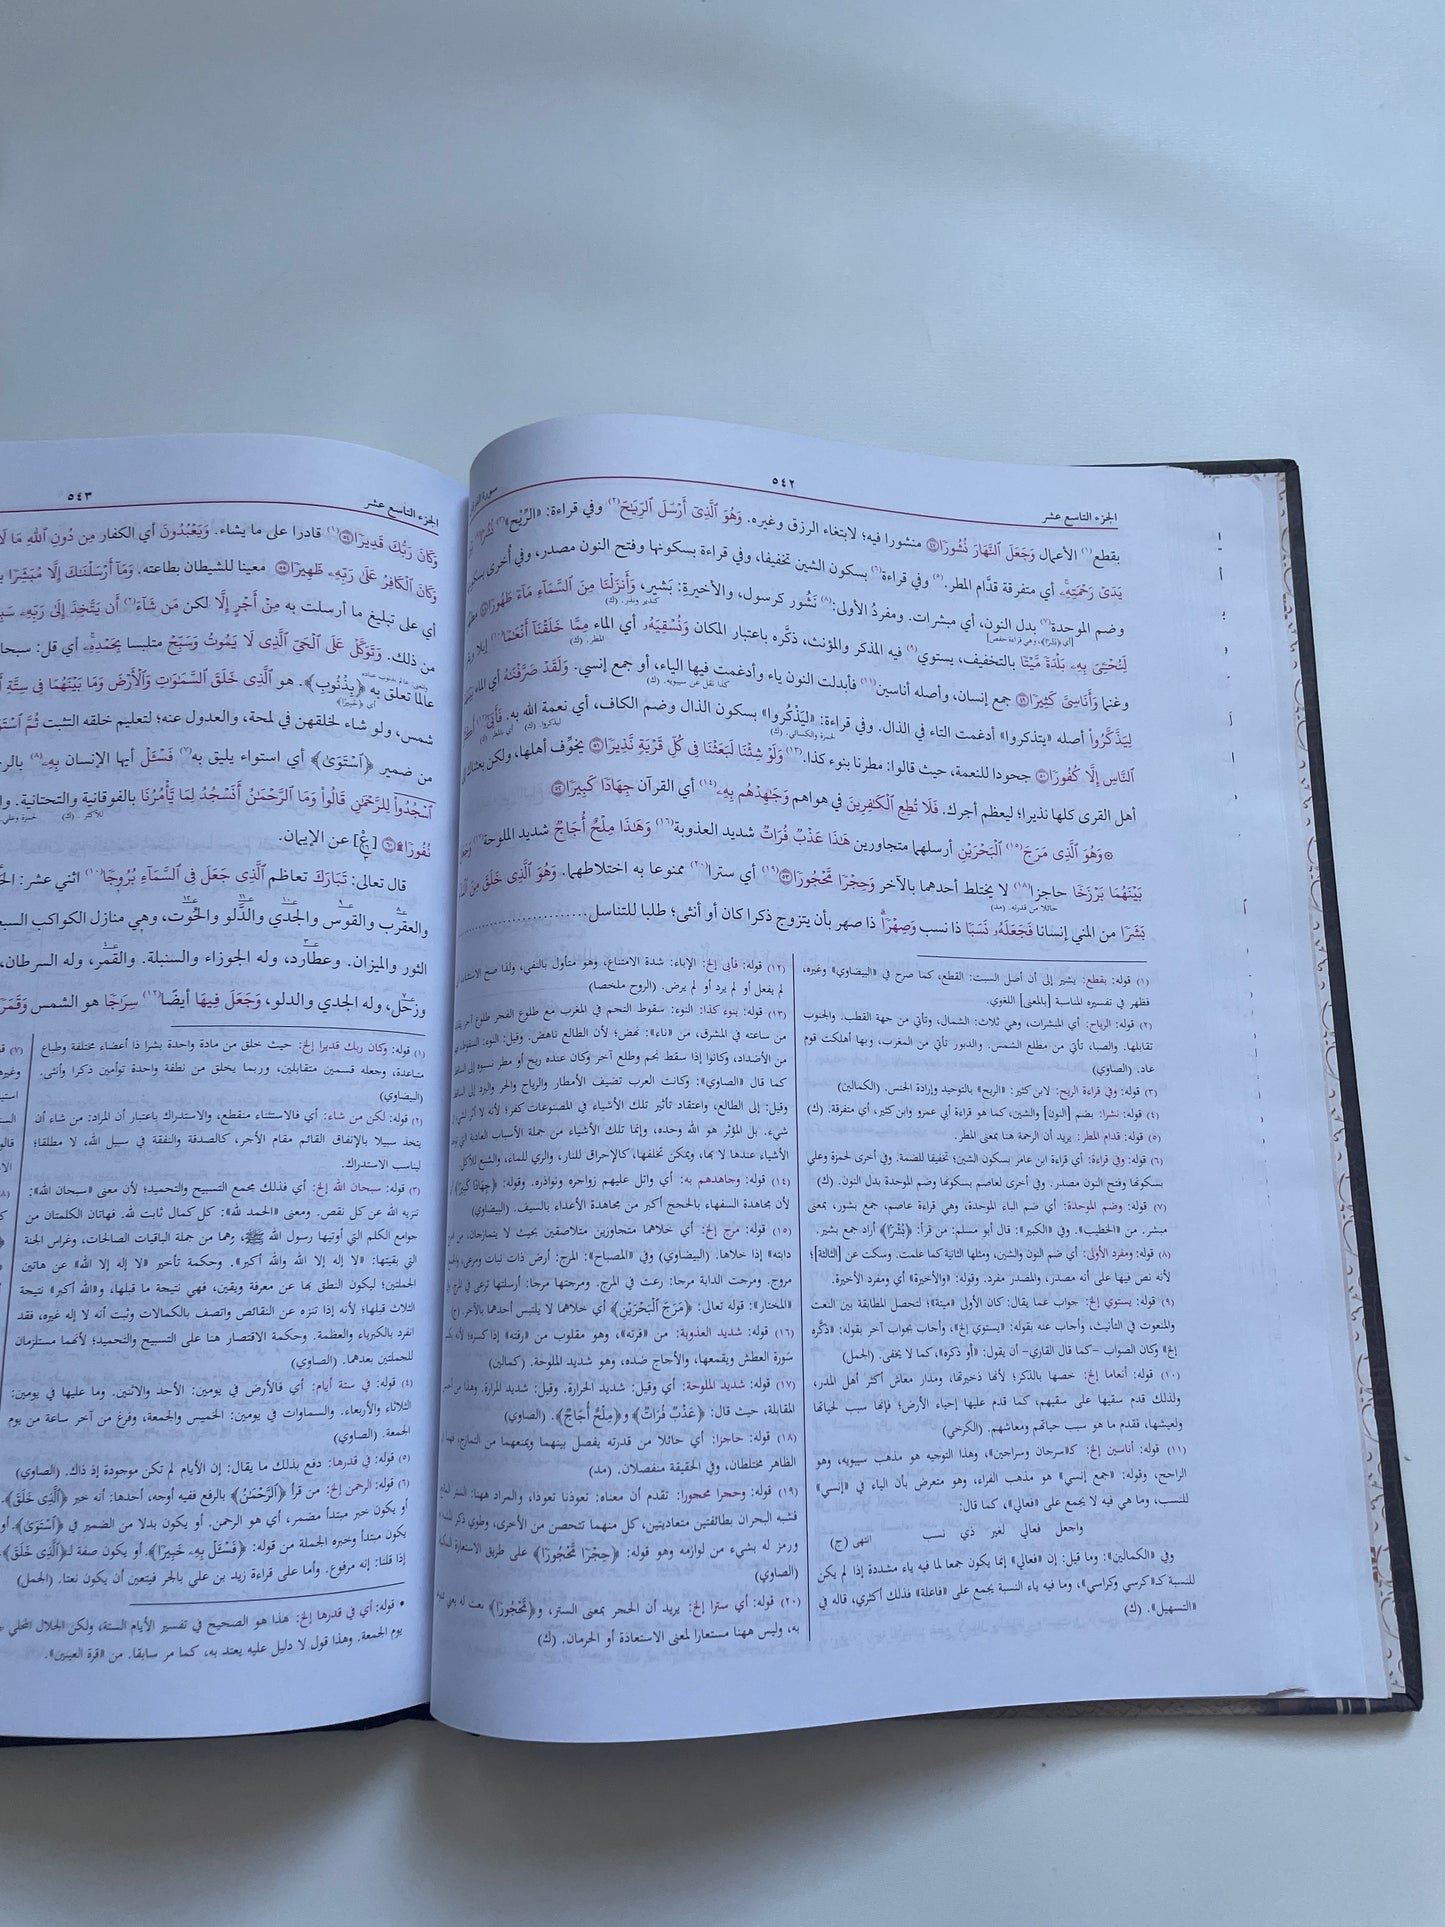 الجزء التاسع عشر
٥٤٢
بقطع(١) الأعمال وَجَعَلَ ٱلنَّهَارَ نُشُورًا ﴿٤٧﴾ منشورا فيه؛ لابتغاء الرزق وغيره. وَهُوَ ٱلَّذِىٓ أَرْسَلَ ٱلرِّيَٰحَ(٢) وفي قراءة: «الرِّيْح»(٣) نُشُرًا(٤)
يَدَىْ رَحْمَتِهِۦ أي متفرقة قدَّام المطر.(٥) وفي قراءة(٦) بسكون الشين تخفيفا، وفي قراءة بسكونها وفتح النون مصدر، وفي أخرى بسكونها
وضم الموحدة(٧) بدل النون، أي مبشرات. ومفردُ الأولى:(٨) نَشُور كرسول، والأخيرةِ: بَشير، وَأَنزَلْنَا مِنَ ٱلسَّمَآءِ مَآءً طَهُورًا ﴿٤٨﴾
لِّنُحْـِۧىَ بِهِۦ بَلْدَةً مَّيْتًا بالتخفيف، يستوي(٩) فيه المذكر والمؤنث، ذكَّره باعتبار المكان وَنُسْقِيَهُۥ أي الماء مِمَّا خَلَقْنَآ أَنْعَٰمًا(١٠) إبلا وبقرا
وغنما وَأَنَاسِىَّ كَثِيرًا ﴿٤٩﴾ جمع إنسان، وأصله أناسين(١١) فأبدلت النون ياء وأدغمت فيها الياء، أو جمع إنسي. وَلَقَدْ صَرَّفْنَٰهُ أي الماء بَيْنَهُمْ
لِيَذَّكَّرُوا۟ أصله «يتذكروا» أدغمت التاء في الذال. وفي قراءة: «لِيَذْكُروا» بسكون الذال وضم الكاف، أي نعمة الله به. فَأَبَىٰٓ(١٢)
ٱلنَّاسِ إِلَّا كُفُورًا ﴿٥٠﴾ جحودا للنعمة، حيث قالوا: مطرنا بنوء كذا.(١٣) وَلَوْ شِئْنَا لَبَعَثْنَا فِى كُلِّ قَرْيَةٍ نَّذِيرًا ﴿٥١﴾ يخوِّف أهلها، ولكن بعثناك إلى
أهل القرى كلها نذيرا؛ ليعظم أجرك. فَلَا تُطِعِ ٱلْكَٰفِرِينَ في هواهم وَجَٰهِدْهُم بِهِۦ(١٤) أي القرآن جِهَادًا كَبِيرًا ﴿٥٢﴾
۞ وَهُوَ ٱلَّذِى مَرَجَ(١٥) ٱلْبَحْرَيْنِ أرسلهما متجاورين هَٰذَا عَذْبٌ فُرَاتٌ شديد العذوبة(١٦) وَهَٰذَا مِلْحٌ أُجَاجٌ شديد الملوحة(١٧) وَجَعَلَ
بَيْنَهُمَا بَرْزَخًا حاجزا(١٨) لا يختلط أحدهما بالآخر وَحِجْرًا مَّحْجُورًا ﴿٥٣﴾(١٩) أي سترا(٢٠) ممنوعا به اختلاطهما. وَهُوَ ٱلَّذِى خَلَقَ مِنَ ٱلْمَآءِ
بَشَرًا من المني إنسانا فَجَعَلَهُۥ نَسَبًا ذا نسب وَصِهْرًا ذا صهر بأن يتزوج ذكرا كان أو أنثى؛ طلبا للتناسل
(١) قوله: بقطع: يشير إلى أن أصل السبت: القطع، كما صرح في «البيضاوي» وغيره،
فظهر في تفسيره المناسبة [بالمعنى] اللغوي.
(٢) قوله: الرياح: أي المبشرات، وهي ثلاث: الشمال، وتأتي من جهة القطب. والجنوب
تقابلها. والصبا، تأتي من مطلع الشمس. والدبور تأتي من المغرب، وبها أهلكت قوم
عاد. (الصاوي)
(٣) قوله: وفي قراءة الريح: لابن كثير: «الريح» بالتوحيد وإرادة الجنس. (الكمالين)
(٤) قوله: نشرا: بضم [النون] والشين، كما هو قراءة أبي عمرو وابن كثير، أي متفرقة. (ك)
(٥) قوله: قدام المطر: يريد أن الرحمة هنا بمعنى المطر.
(٦) قوله: وفي قراءة: أي قراءة ابن عامر بسكون الشين؛ تخفيفا للضمة. وفي أخرى لحمزة وعلي
بسكونها وفتح النون مصدر. وفي أخرى لعاصم بسكونها وضم الموحدة بدل النون. (ك)
(٧) قوله: وضم الموحدة: أي ضم الباء الموحدة، وهي قراءة عاصم، جمع بشور، بمعنى
مبشر. من «الخطيب». وفي «الكبير»: قال أبو مسلم: من قرأ: ﴿بُشْرًا﴾ أراد جمع بشير.
(٨) قوله: ومفرد الأولى: أي ضم النون والشين، ومثلها الثانية كما علمت. وسكت عن [الثالثة]؛
لأنه نص فيها على أنه مصدر، والمصدر مفرد. وقوله: «والأخيرة» أي ومفرد الأخيرة.
(٩) قوله: يستوي إلخ: جواب عما يقال: كان الأولى «ميتة»؛ لتحصل المطابقة بين النعت
والمنعوت في التأنيث، وأجاب عنه بقوله: «يستوي إلخ»، وأجاب بجواب آخر بقوله: «ذكَّره
إلخ» وكان الصواب –كما قال القاري– أن يقول: «أو ذكره»، كما لا يخفى. (الجمل)
(١٠) قوله: أنعاما إلخ: خصها بالذكر؛ لأنها ذخيرتها، ومدار معاش أكثر أهل المدر،
ولذلك قدم سقيها على سقيهم، كما قدم عليها إحياء الأرض؛ فإنها سبب لحياتها
ولعيشها، فقدم ما هو سبب حياتهم ومعاشهم. (الكرخي)
(١١) قوله: أناسين إلخ: كـ«سرحان وسراحين»، وهذا التوجيه هو مذهب سيبويه، وهو
الراجح، وقوله: «جمع إنسي» هو مذهب الفراء، وهو متعرض بأن الياء في «إنسي»
للنسب، وما هي فيه لا يجمع على «فعالي»، كما قال:
واجعل فعالي لغير ذي نسب انتهى (ج)
وفي «الكمالين»: وما قيل: إن «فعالي» إنما يكون جمعا لما فيه ياء مشددة إذا لم يكن
للنسبة كـ«كرسي وكراسي»، وما فيه ياء النسبة يجمع على «فاعلة» فذلك أكثري، قاله في
«التسهيل». (ك)
(١٢) قوله: فأبى إلخ: الإباء: شدة الامتناع، وهو متأول بالنفي، ولذا صح الاستثناء
لم يفعل أو لم يرد أو لم يرض. (الروح ملخصا)
(١٣) قوله: بنوء كذا: النوء: سقوط النجم في المغرب مع طلوع الفجر طلوع آخر
من ساعته في المشرق، من «ناء»: نهض؛ لأن الطالع ناهض. وقيل: النوء: السقوط،
من الأضداد، وكانوا إذا سقط نجم وطلع آخر وكان عنده ريح أو مطر نسبوه إلى
كما قال «الصاوي»: وكانت العرب تضيف الأمطار والرياح والحر والبرد إلى
وقيل: إلى الطالع، واعتقاد تأثير تلك الأشياء في المصنوعات كفر؛ لأنه لا أثر
شيء. بل المؤثر هو الله وحده، وإنما تلك الأشياء من جملة الأسباب العادية التي
الأشياء عندها لا بها، ويمكن تخلفها، كالإحراق للنار، والري للماء، والشبع للأكل.
(١٤) قوله: وجاهدهم به: أي واتل عليهم زواجره ونواذره. وقوله: ﴿جِهَادًا كَبِيرًا﴾
لأن مجاهدة السفهاء بالحجج أكبر من مجاهدة الأعداء بالسيف. (البيضاوي)
(١٥) قوله: مرج إلخ: أي خلاهما متجاوزين متلاصقين بحيث لا يتمازجان،
دابته» إذا خلاها. (البيضاوي) وفي «المصباح»: المرج: أرض ذات نبات ومرعى،
مروج. ومرجت الدابة مرجا: رعت في المرج. ومرجتها مرجا: أرسلتها ترعى في المرج
«المختار»: قوله تعالى: ﴿مَرَجَ ٱلْبَحْرَيْنِ﴾ أي خلاهما لا يلتبس أحدهما بالآخر. (ج)
(١٦) قوله: شديد العذوبة: من «فرته»، وهو مقلوب من «رفته» إذا كسره؛ لأنه
سَورة العطش ويقمعها، والأجاج ضده، وهو شديد الملوحة. (كمالين)
(١٧) قوله: شديد الملوحة: أي وقيل: شديد الحرارة. وقيل: شديد المرارة. وهذا من
المقابلة، حيث قال: ﴿عَذْبٌ فُرَاتٌ﴾ و﴿مِلْحٌ أُجَاجٌ﴾. (الصاوي)
(١٨) قوله: حاجزا: أي حائلا من قدرته يفصل بينهما ويمنعهما من التمازج،
الظاهر مختلطان، وفي الحقيقة منفصلان. (مد)
(١٩) قوله: وحجرا محجورا: تقدم أن معناه: تعوذنا تعوذا، والمراد ههنا: الستر
فشبه البحران بطائفتين متعاديتين، كل منهما تتحصن من الأخرى، وطوي ذكر
ورمز له بشيء من لوازمه وهو قوله: ﴿حِجْرًا مَّحْجُورًا﴾ على طريق الاستعارة
(الصاوي)
(٢٠) قوله: أي سترا إلخ: يريد أن الحجر بمعنى الستر، و﴿مَّحْجُورًا﴾ نعت له
به، وليس ههنا مستعارا لمعنى الاستعاذة أو الحرمان. (ك)
الجزء التاسع عشر
٥٤٣
وَكَانَ رَبُّكَ قَدِيرًا ﴿٥٤﴾(١) قادرا على ما يشاء. وَيَعْبُدُونَ أي الكفار مِن دُونِ ٱللَّهِ مَا لَا
وَكَانَ ٱلْكَافِرُ عَلَىٰ رَبِّهِۦ ظَهِيرًا ﴿٥٥﴾ معينا للشيطان بطاعته. وَمَآ أَرْسَلْنَٰكَ إِلَّا مُبَشِّرًا
أي على تبليغ ما أرسلت به مِنْ أَجْرٍ إِلَّا لكن مَن شَآءَ(٢) أَن يَتَّخِذَ إِلَىٰ رَبِّهِۦ
من ذلك. وَتَوَكَّلْ عَلَى ٱلْحَىِّ ٱلَّذِى لَا يَمُوتُ وَسَبِّحْ متلبسا بِحَمْدِهِۦ أي قل: سبحان
عالما تعلق به ﴿بِذُنُوبِ﴾. هو ٱلَّذِى خَلَقَ ٱلسَّمَٰوَٰتِ وَٱلْأَرْضَ وَمَا بَيْنَهُمَا فِى سِتَّةِ
شمس، ولو شاء لخلقهن في لمحة، والعدول عنه؛ لتعليم خلقه التثبت ثُمَّ ٱسْتَوَىٰ
من ضمير ﴿ٱسْتَوَىٰ﴾ أي استواء يليق به(٧) فَسْـَٔلْ أيها الإنسان بِهِۦ(٨)
ٱسْجُدُوا۟ لِلرَّحْمَٰنِ قَالُوا۟ وَمَا ٱلرَّحْمَٰنُ أَنَسْجُدُ لِمَا يَأْمُرُنَا بالفوقانية والتحتانية.
نُفُورًا ﴿٦٠﴾ عن الإيمان.
قال تعالى: تَبَارَكَ تعاظم ٱلَّذِى جَعَلَ فِى ٱلسَّمَآءِ بُرُوجًا(١٠) اثني عشر:
والعقرب والقوس والجدي والدَّلو والحُوت، وهي منازل الكواكب
الثور والميزان. وعطارد، وله الجوزاء والسنبلة. والقمر، وله السرطان،
وزحل، وله الجدي والدلو، وَجَعَلَ فِيهَا أيضًا(١٢) سِرَٰجًا هو الشمس وَقَمَرًا
(١) قوله: وكان ربك قديرا إلخ: حيث خلق من مادة واحدة بشرا ذا أعضاء مختلفة وطباع
متباعدة، وجعله قسمين متقابلين، وربما يخلق من نطفة واحدة توأمين ذكرا وأنثى.
(البيضاوي)
(٢) قوله: لكن من شاء: أي فالاستثناء منقطع، والاستدراك باعتبار أن المراد: من شاء أن
يتخذ سبيلا بالإنفاق القائم مقام الأجر، كالصدقة والنفقة في سبيل الله، لا مطلقا؛
ليناسب الاستدراك.
(٣) قوله: سبحان الله إلخ: أي فذلك بجمع التسبيح والتحميد؛ لأن معنى «سبحان الله»:
تنزيه الله عن كل نقص. ومعنى «الحمد لله»: كل كمال ثابت لله. فهاتان الكلمتان من
جوامع الكلم التي أوتيها رسول الله ﷺ، وهما من جملة الباقيات الصالحات، وغراس الجنة
التي بقيتها: «لا إله إلا الله والله أكبر». وحكمة تأخير «لا إله إلا الله» عن هاتين
الجملتين؛ ليكون النطق بها عن معرفة ويقين، فهي نتيجة ما قبلها، و«الله أكبر» نتيجة
الثلاث قبلها؛ لأنه إذا تنزه عن النقائص واتصف بالكمالات وثبت أنه لا إله غيره، فقد
انفرد بالكبرياء والعظمة. وحكمة الاقتصار هنا على التسبيح والتحميد؛ لأنهما مستلزمان
للجملتين بعدهما. (الصاوي)
(٤) قوله: في ستة أيام: أي فالأرض في يومين: الأحد والاثنين. وما عليها في يومين:
الثلاثاء والأربعاء. والسماوات في يومين: الخميس والجمعة، وفرغ من آخر ساعة من يوم
الجمعة. (الصاوي)
(٥) قوله: في قدرها: دفع بذلك ما يقال: إن الأيام لم تكن موجودة إذ ذاك. (الصاوي)
(٦) قوله: الرحمن إلخ: من قرأ ﴿ٱلرَّحْمَٰنُ﴾ بالرفع ففيه أوجه، أحدها: أنه خبر ﴿ٱلَّذِى خَلَقَ﴾.
أو يكون خبر مبتدأ مضمر، أي هو الرحمن. أو يكون بدلا من الضمير في ﴿ٱسْتَوَىٰ﴾. أو
يكون مبتدأ وخبره الجملة من قوله: ﴿فَسْـَٔلْ بِهِۦ خَبِيرًا﴾. أو يكون صفة لـ﴿ٱلَّذِى خَلَقَ﴾،
إذا قلنا: إنه مرفوع. وأما على قراءة زيد بن علي بالجر فيتعين أن يكون نعتا. (الجمل)
• قوله: أي في قدرها إلخ: هذا هو الصحيح في تفسير الأيام الستة، ولكن الجلال المحلي
يوم الجمعة. وهذا قول لا دليل عليه يعتد به، كما مر سابقا. من «قرة العينين».